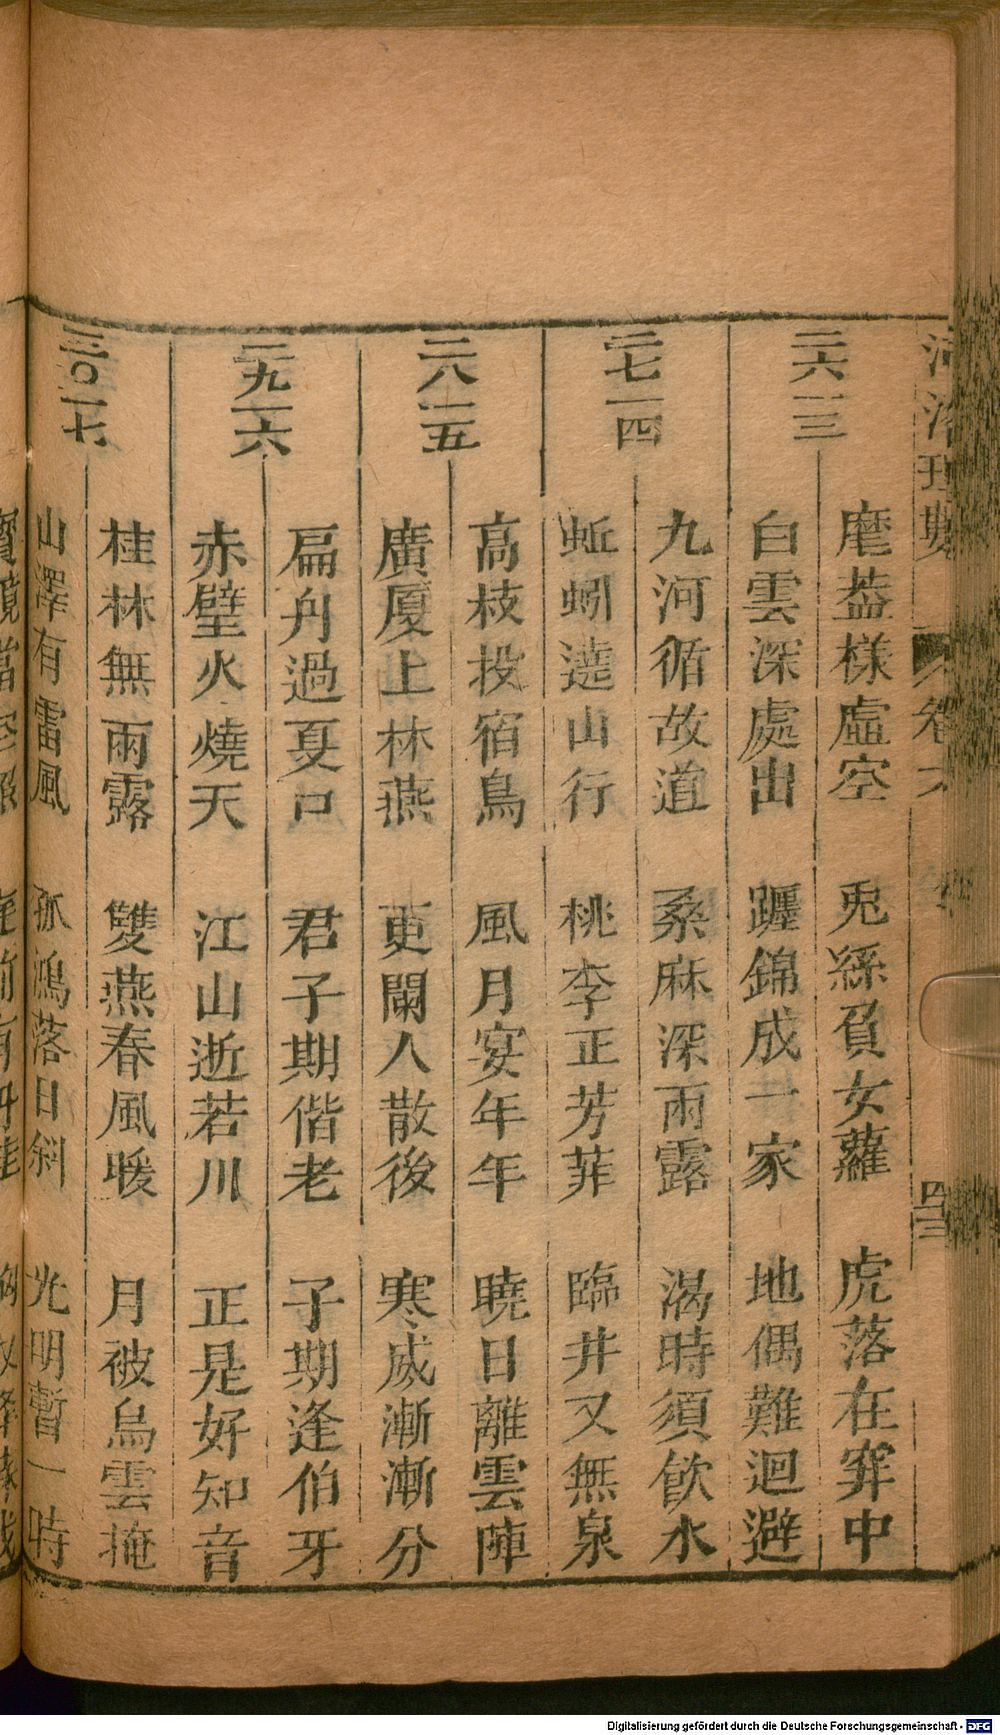 河洛理數
卷六
四三
二六 一三
磨蓋樣虛空 兎絲負女蘿 虎落在穽中
白雲深處出 躔錦成一家 地偶難迴避
二七 一四
九河循故道 桑麻深雨露 渴時須飲水
蚯蚓遶山行 桃李正芳菲 臨井又無泉
二八 一五
高枝投宿鳥 風月宴年年 曉日離雲陣
廣厦上林燕 更闌人散後 寒威漸漸分
二九 一六
扁舟過夏口 君子期偕老 子期逢伯牙
赤壁火燒天 江山逝若川 正是好知音
三〇 一七
桂林無雨露 雙燕春風暖 月被烏雲掩
山澤有雷風 孤鴻落日斜 光明暫一時
Digitalisierung gefördert durch die Deutsche Forschungsgemeinschaft - DFG